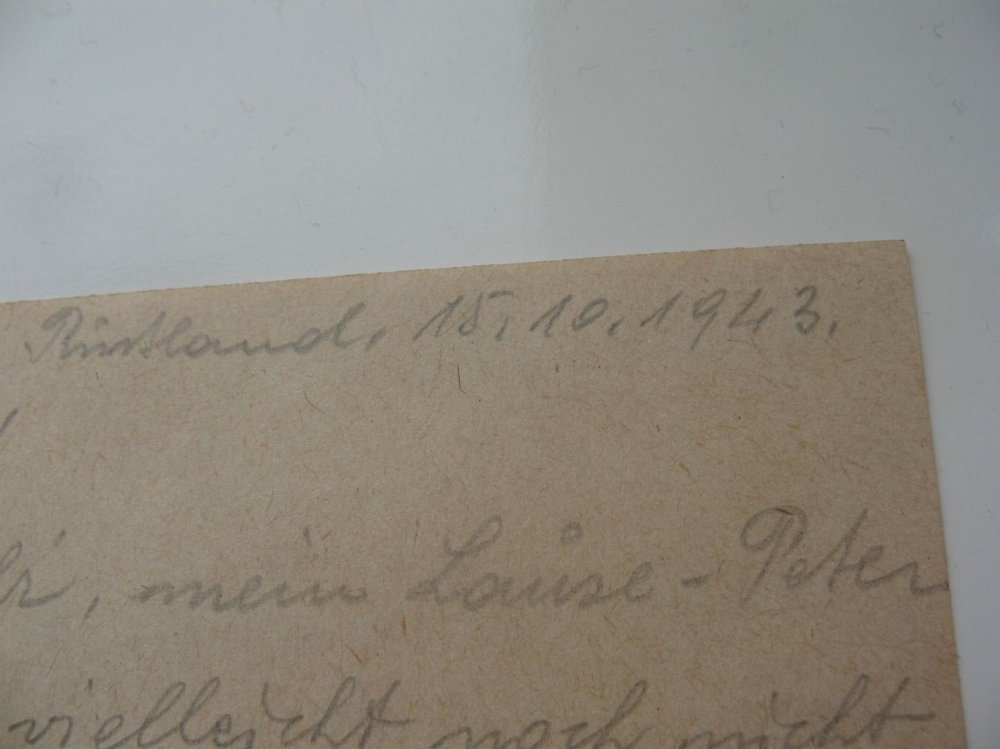 Rußland, 15. 10. 1943.
mein Lause-Peter
vielleicht noch nicht